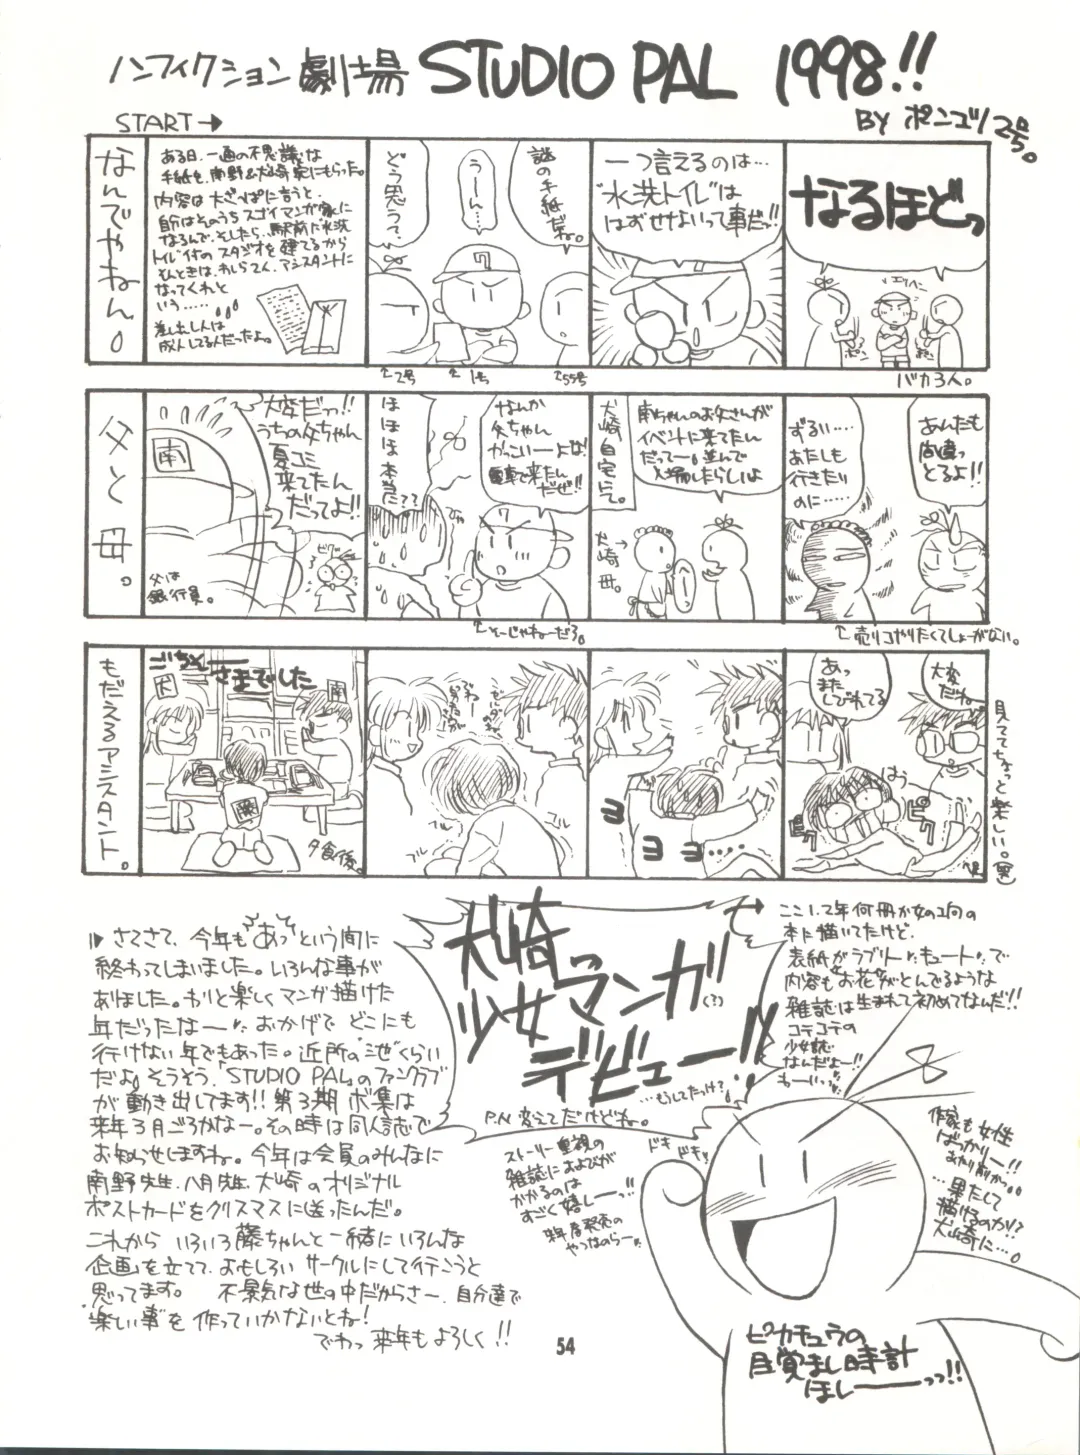 ノンフィクション劇場 STUDIO PAL 1998!!
START→
BY ポンユリ2号。
なんでやねん。
ある日、一通の不思議な
手紙を、南野&犬崎家にもらった。
内容は大ざっぱに言うと、
自分はそのうちスゴイマンガ家に
なるんで、そしたら、駅前に水洗
トイレ付のスタジオを建てるから
そんときは、わしらてく、アシスタントに
なってくれと
いう……
差し出し人は
成人してる人だったよ。
謎の手紙だね。
うーん…
どう思う?
↑2号
↑1号
↑55号
一つ言えるのは…
"水洗トイレ"は
はずせないって事だッ!!
なるほどっ
バカ3人。
父と母。
大変だッ!!
うちの父ちゃん
夏コミ
来てたん
だってよ!!
南
ビクッ
父は
銀行員。
なんか
父ちゃん
かっこいーよな!
電車で来たん
だぜ!!
ほほほ本当に??
↑そーじゃねーだろ。
犬崎自宅にて。
南ちゃんのお父さんが
イベントに来てたん
だってー。並んで
入場したらしいよ
犬崎母。→
ずるい…
あたしも
行きたい
のに……
あんたも
間違っ
とるよ!!
↑売り子やりたくてしょーがない。
もだえるアシスタント。
ごちそーさまでした
犬
南
夕食後。
ブル
コル
ヨ
ヨ
ヨ……
あっ
また
しびれてる
大変
だね
はう
ピク
ピク
ピク
見ててちょっと楽しい。(男)
▷さてさて、今年も"あっ"という間に
終わってしまいました。いろんな事が
ありました。わりと楽しくマンガ描けた
年だったなー。おかげで どこにも
行けない年でもあった。近所の"池"くらい
だよ。そうそう、「STUDIO PAL」のファンクラブ
が動き出してます!! 第3期ボ集は
来年3月ごろかなー。その時は同人誌で
お知らせしますね。今年は会員のみんなに
南野先生、八月先生、犬崎のオリジナル
ポストカードをクリスマスに送ったんだ。
これから いろいろ藤ちゃんと一緒にいろんな
企画を立てて、おもしろい サークルにして行こうと
思ってます。 不景気な世の中だからさー、自分達で
"楽しい事"を作っていかないとね!
でわっ 来年もよろしく!!
犬崎
少女マンガ(?)
デビュー!!
…もうしてたっけ?
P.N.変えてだけどね。
ストーリー重視の
雑誌におよびが
かかるのは
すごく嬉しーっ!!
来年春発売の
やつなのらー
ドキドキッ
ここ1、2年何冊か女のコ向の
本に描いてたけど、
表紙がラブリー、キュートで
内容も"お花"がとんでるような
雑誌は生まれて初めてなんだ!!
コテコテの
少女誌
なんだよー!!
わーいっ
作家も女性
ばっかりー!!
あたり前かっ
…果たして
描けるのか!?
犬崎に…。
ピカチュウの
目覚まし時計
ほしーーっっ!!
54